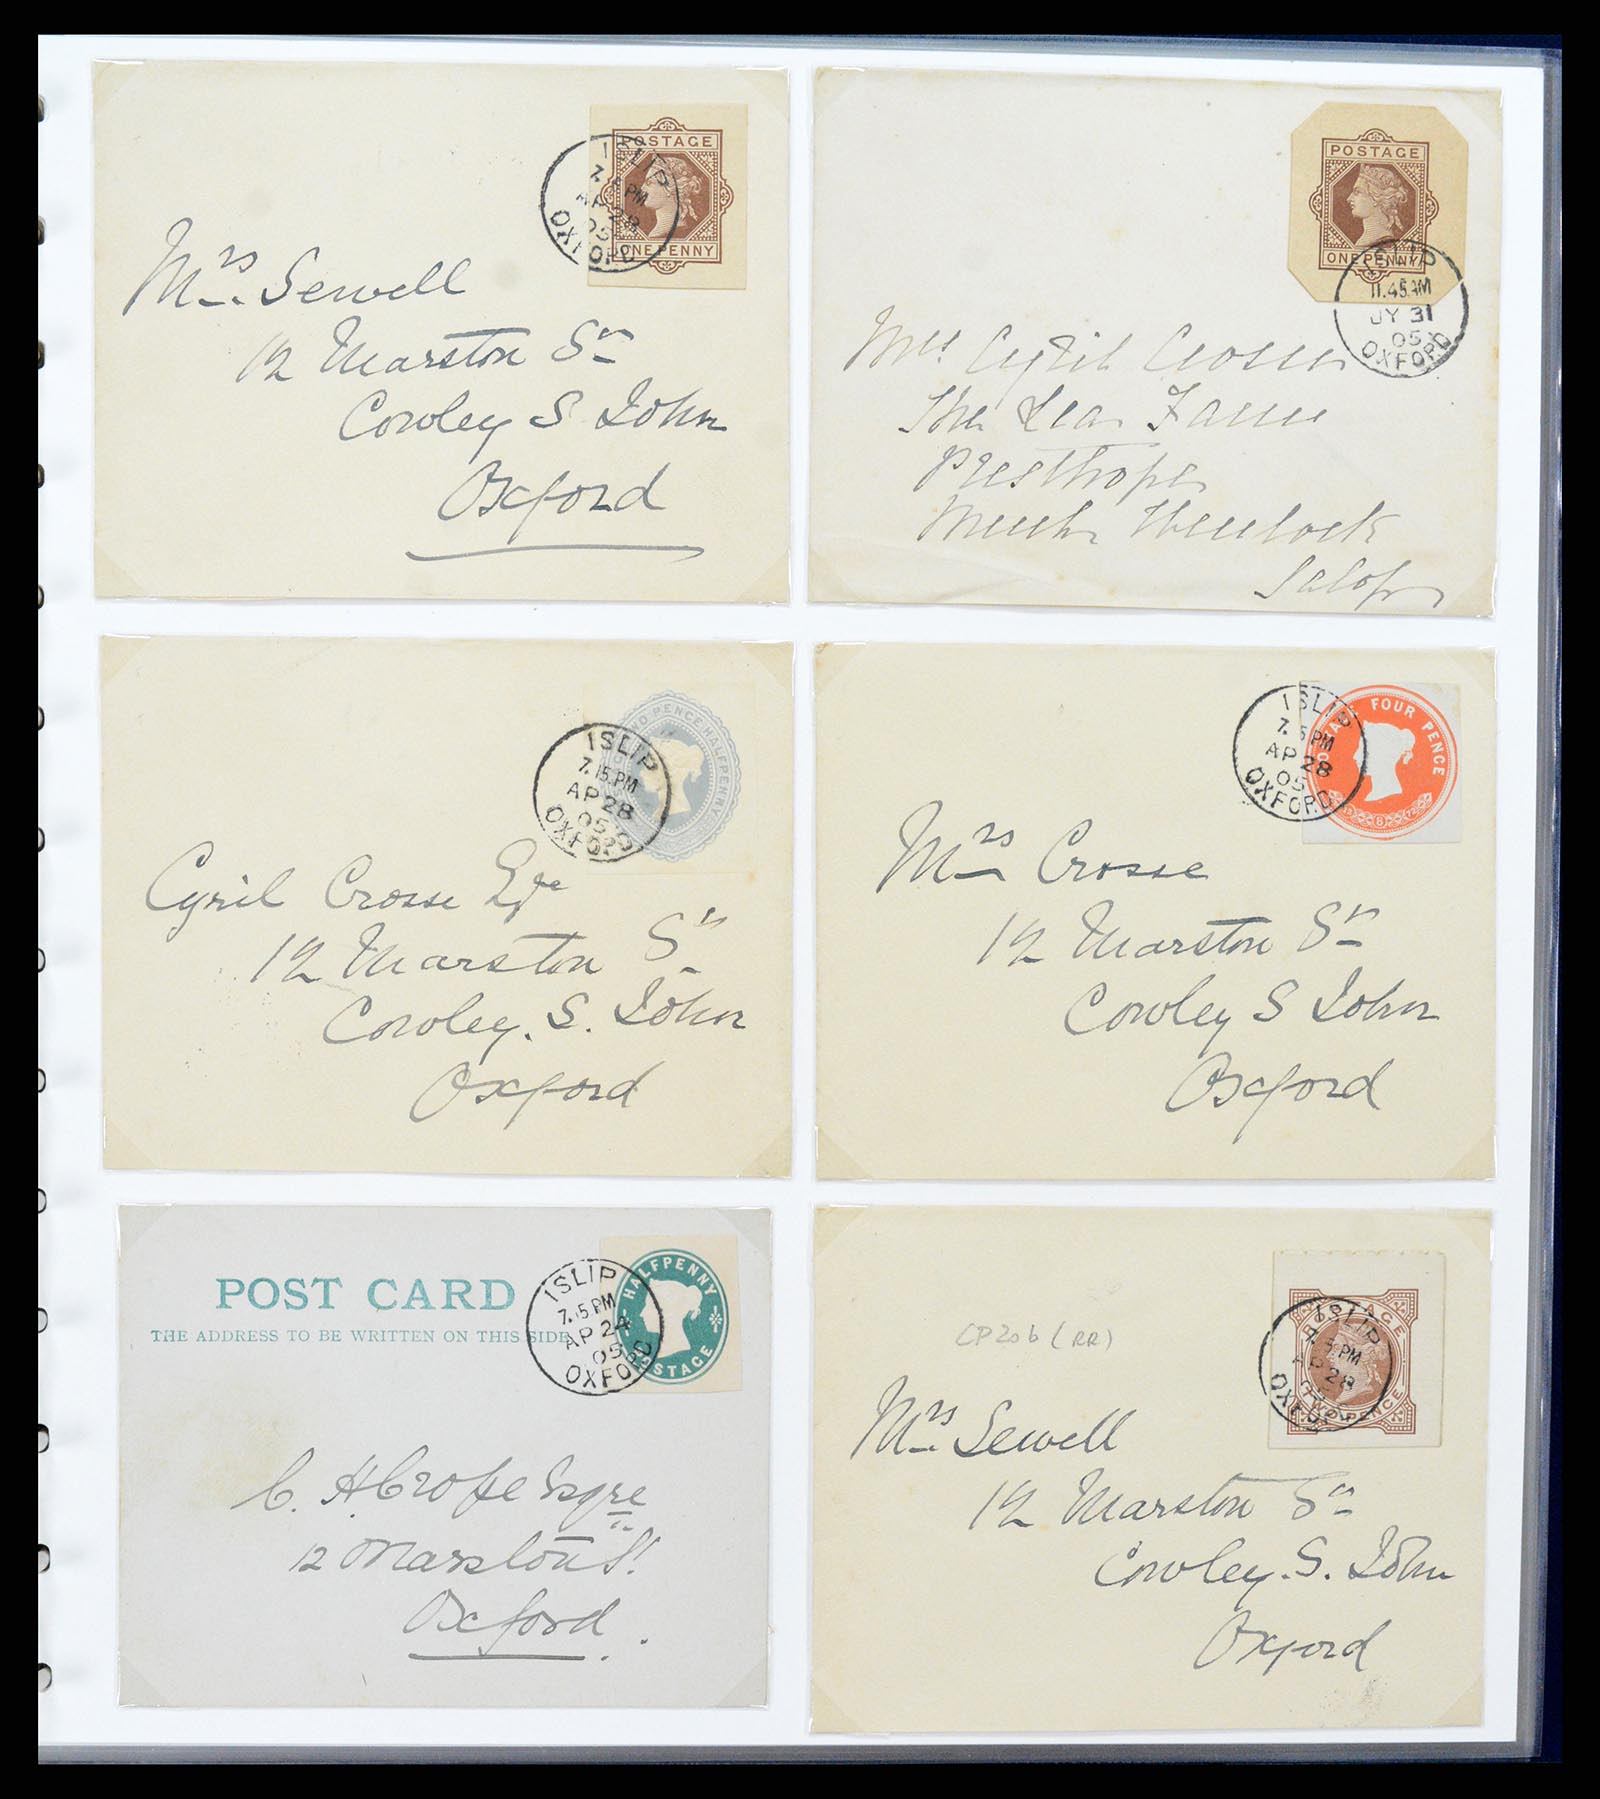 POSTAGE
ONE PENNY
ISLIP
7. PM
AP 28
05
OXFORD
Mrs. Sewell
12 Marston St
Cowley S John
Oxford
POSTAGE
ONE PENNY
ISLIP
11.45AM
JY 31
05
OXFORD
Mrs Cyril Crosse
The Lea Farm
Presthope
Much Wenlock
Salop
TWO PENCE HALFPENNY
ISLIP
7.15PM
AP 28
05
OXFORD
Cyril Crosse Esqre
12 Marston St
Cowley. S. John
Oxford
POSTAGE FOUR PENCE
8 72
ISLIP
7. 5 PM
AP 28
05
OXFORD
Mrs Crosse
12 Marston St
Cowley S John
Oxford
POST CARD
THE ADDRESS TO BE WRITTEN ON THIS SIDE
HALFPENNY
POSTAGE
ISLIP
7.15PM
AP 24
05
OXFORD
C. H Crosse Esqre
12 Marston St.
Oxford.
CP20b (RR)
POSTAGE
TWO PENCE
ISLIP
7. 5 PM
AP 28
OXFORD
Mrs. Sewell
12 Marston St
Cowley. S. John
Oxford